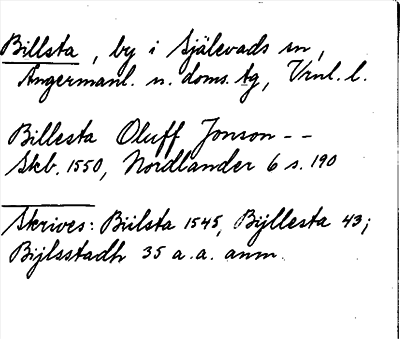 Billsta, by i Själevads sn,
Ångermanl. n. doms. tg, Vrnl. l.
Billesta Oluff Jonson - -
Skb. 1550, Nordlander 6 s. 190
Skrives: Biilsta 1545, Bÿllesta 43;
Bijlsstadh 35 a.a. anm.